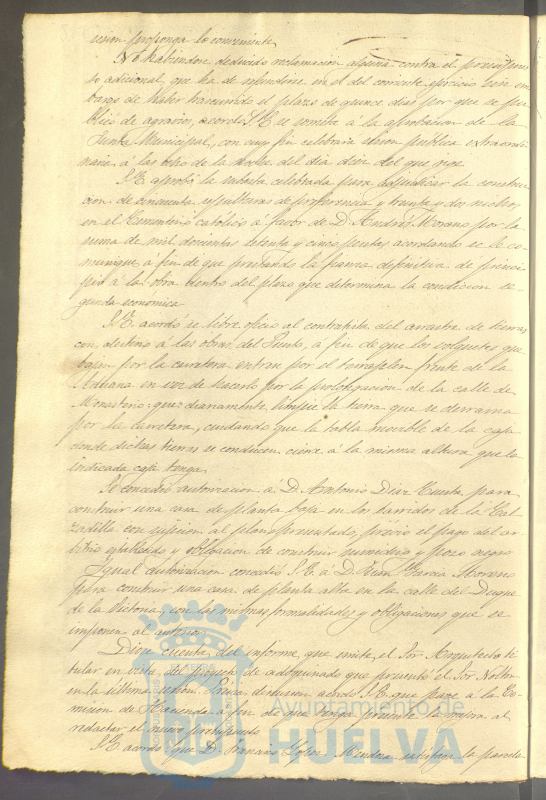 sion proponga lo conveniente.
No habiéndose deducido reclamacion alguna contra el presupues-
to adicional que ha de refundirse en el del corriente ejercicio sin em-
bargo de haber transcurrido el plazo de quince dias por que se pu-
blicó de agravios, acordó S.E. se remita á la aprobacion de la
Junta Municipal, con cuyo fin celebrará sesion publica extraordi-
naria á las ocho de la noche del dia diez del que rige.
S.E. aprobó la subasta celebrada para adjudicar la construc-
cion de cincuenta sepulturas de preferencia y treinta y dos nichos
en el Cementerio catolico á favor de D. Andrés Moreno por la
suma de mil doscientas setenta y cinco pesetas acordando se le co-
munique á fin de que prestando la fianza definitiva dé princi-
pio á la obra dentro del plazo que determina la condicion se-
gunda economica.
S.E. acordó se libre oficio al contratista del arrastre de tierras
con destino á las obras del Punto, á fin de que los volquetes que
bajan por la carretera entren por el terraplen frente de la
Aduana en vez de hacerlo por la prolongacion de la calle de
Monasterio: que diariamente limpie la tierra que se derrama
por la carretera, cuidando que la tabla movible de la caja
donde dichas tierras se conducen cierre á la misma altura que la
indicada caja tenga.
Se concedió autorizacion á D. Antonio Diaz Cuesta para
construir una casa de planta baja en los barridos de la Cal-
zadilla con sujecion al plano presentado, previo el pago del ar-
bitrio establecido y obligacion de construir sumidero y pozo negro
Igual autorizacion concedió S.E. á D. Juan Garcia Moreno
para construir una casa de planta alta en la calle del Duque
de la Victoria con las mismas formalidades y obligaciones que se
imponen al anterior.
Dióse cuenta del informe que emite el Sor. Arquitecto ti-
tular en vista del proyecto de adoquinado que presentó el Sor.
en la última sesion. Previa discusion acordó S.E. que pase á la Co-
mision de Hacienda á fin de que tenga presente la mejora al
redactar el nuevo presupuesto
S.E. acordó que D. Lopez Mendez satisfaga la parcela
Ayuntamiento de
HUELVA